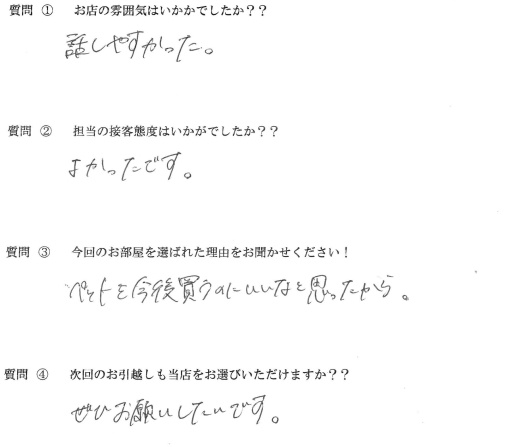 質問 ① お店の雰囲気はいかかでしたか??
話しやすかった。
質問 ② 担当の接客態度はいかがでしたか??
よかったです。
質問 ③ 今回のお部屋を選ばれた理由をお聞かせください!
ペットを今後買うのにいいなと思ったから。
質問 ④ 次回のお引越しも当店をお選びいただけますか??
ぜひお願いしたいです。